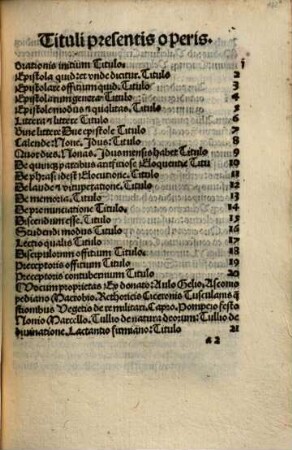 Tituli presentis operis.
Orationis initium Titulo. 1
Epistola quid: et vnde dicitur. Titulo 2
Epistolare officium quid. Titulo 3
Epistolarum genera: Titulo 4
Epistole modus et qualitas. Titulo 5
Littera et littere Titulo 6
Vine littere Due epistole Titulo 7
Calende: None. Idus: Titulo 8
Quot dies. Nonas. Idus menses habet Titulo 9
De quinque partibus artificiose Eloquentie Titu 10
De phrasi idest Elocutione. Titulo 11
De laude et vituperatione. Titulo 12
De memoria. Titulo 13
De pronunciatione Titulo. 14
Discendum esse. Titulo 15
Studendi modus Titulo 16
Lectio qualis Titulo 17
Discipulorum officium Titulo. 18
Preceptoris officium Titulo 19
Preceptoris contubernium Titulo 20
Vocum proprietas: Ex donato: Aulo Gelio, Asconio
pediano Macrobio. Rethoricis Ciceronis Tusculanis q
stionibus Vegetio de re militari. Capro. Pompeio festo
Nonio Marcello. Tullio de natura deorum: Tullio de
diuinatione. Lactantio firmiano: Titulo 21
a 2